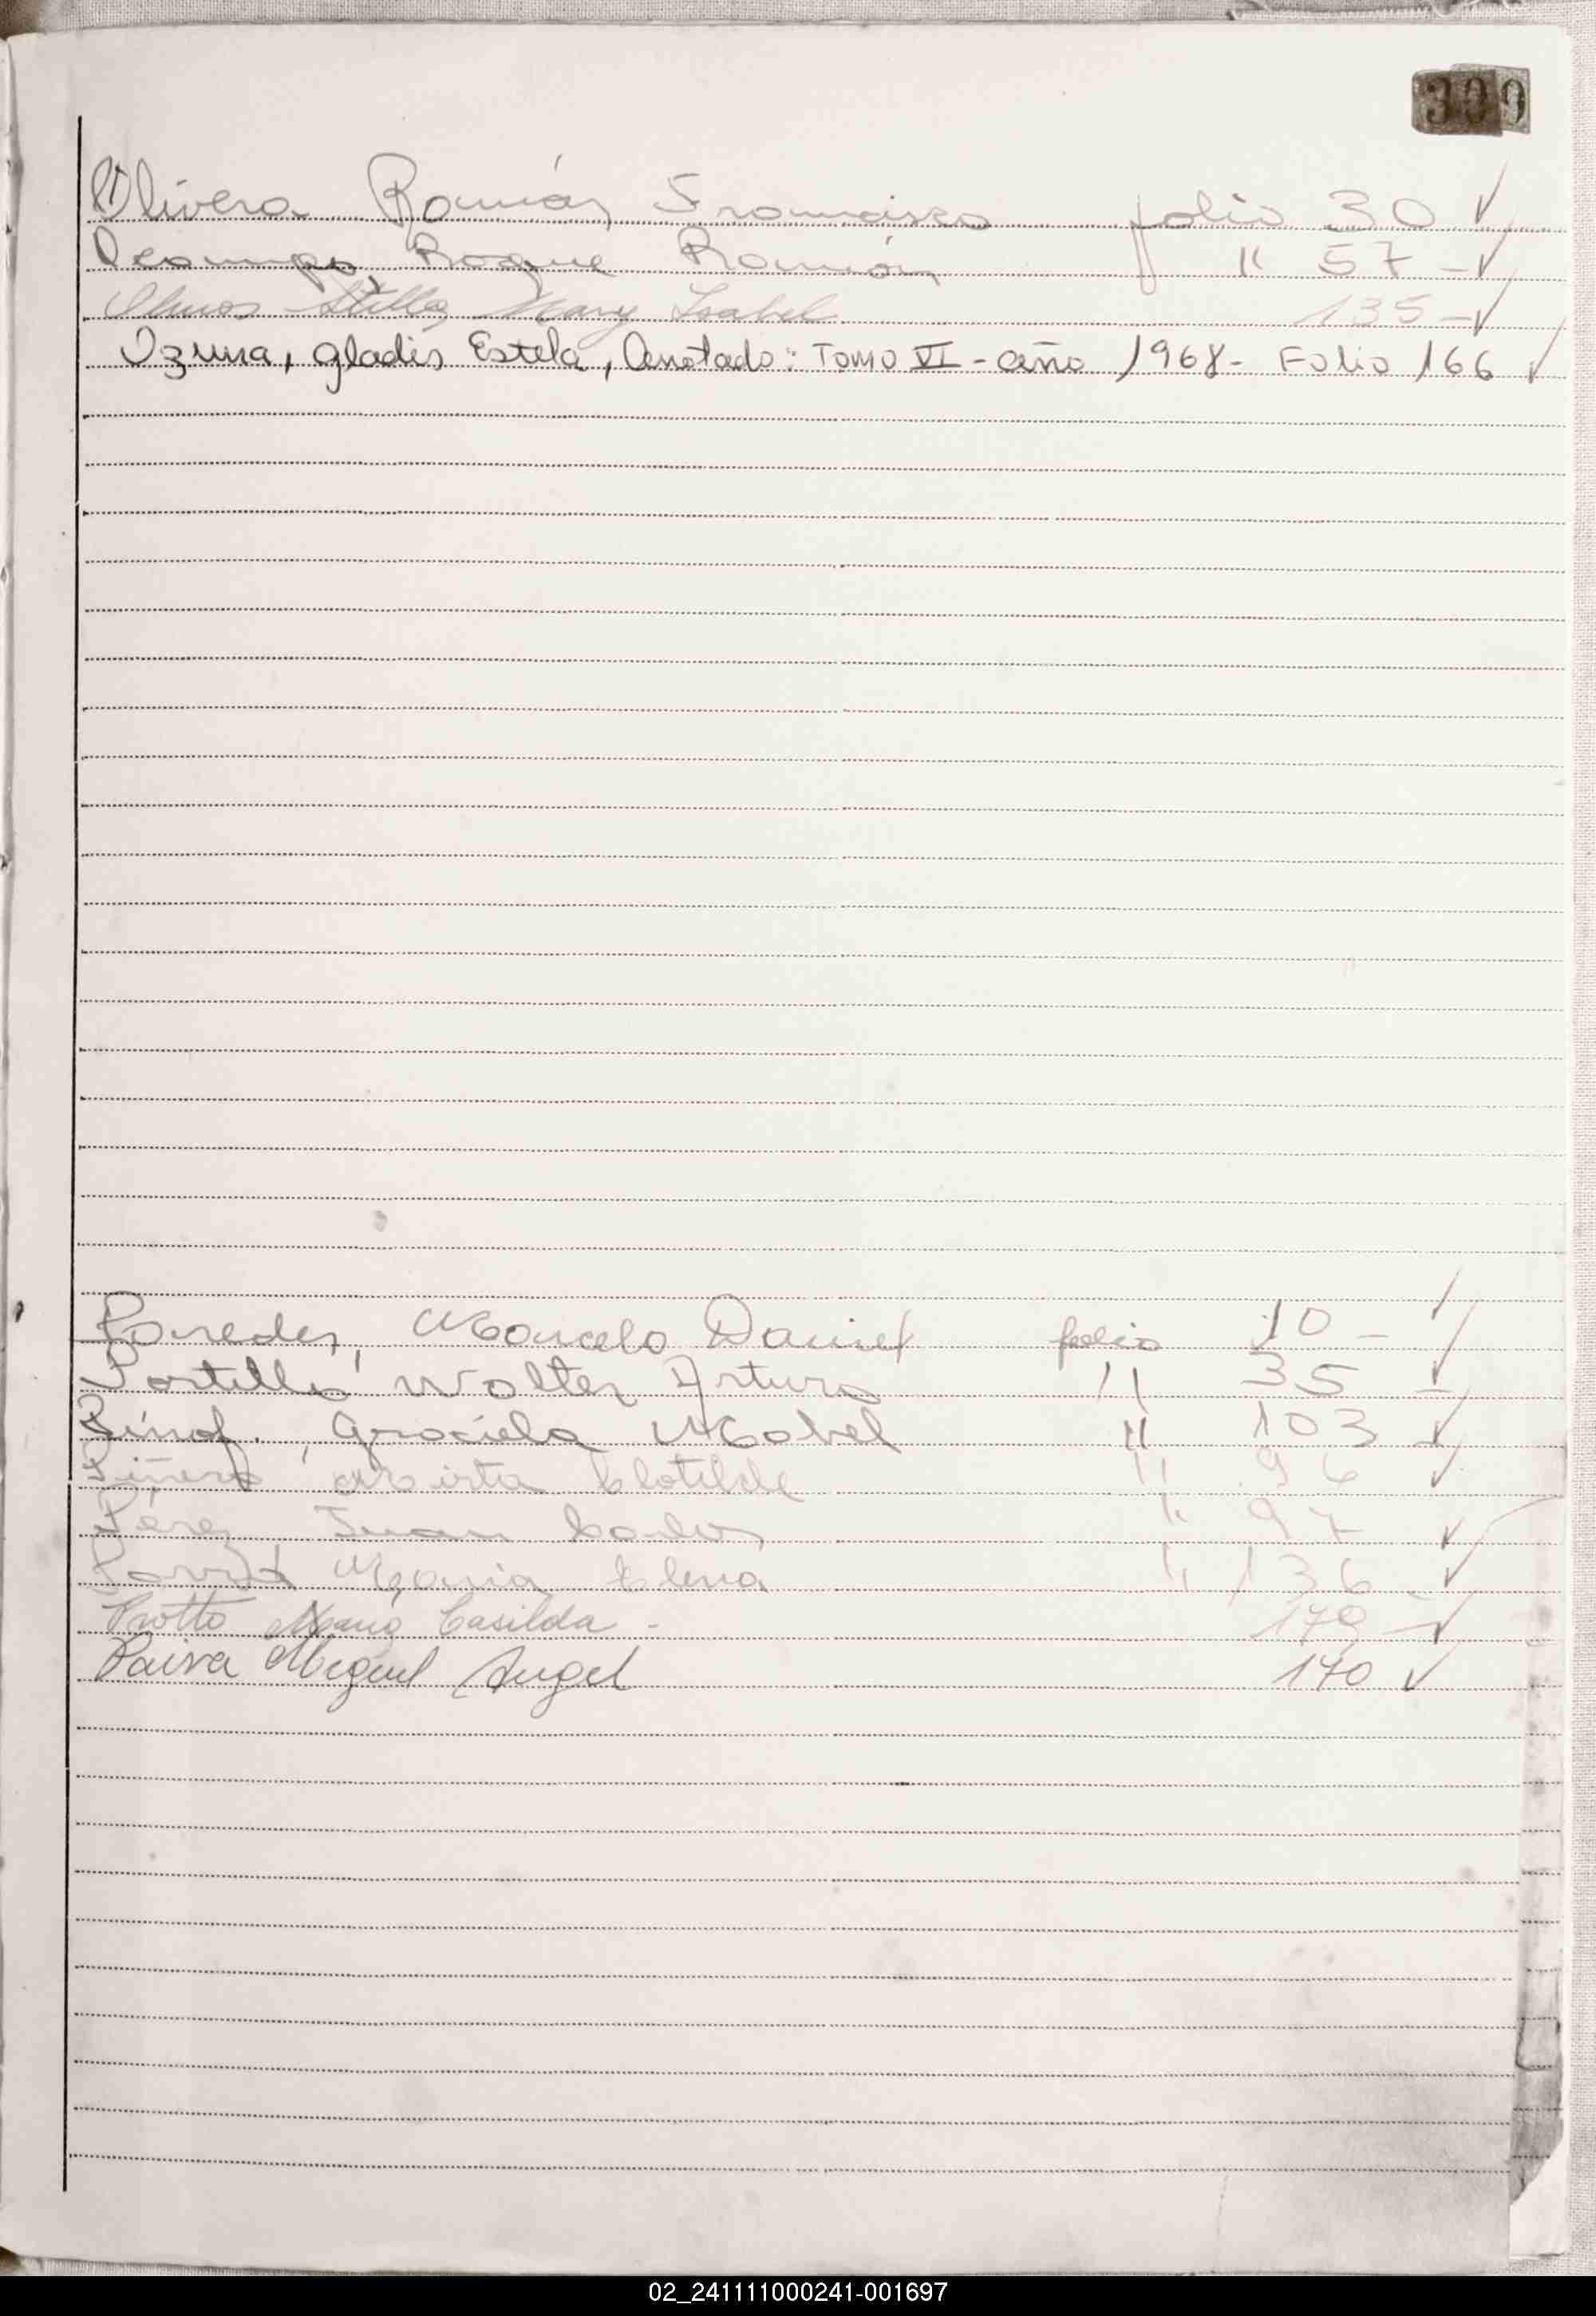 300
Olivera Román Francisco folio 30 ✓
Ocampo, Roque Ramón " 57 - ✓
Olmos Stella Mary Isabel 135 - ✓
Ozuna, Gladis Estela, Anotado: Tomo VI - año 1968 - Folio 166 ✓
Paredes, Marcelo Daniel folio 10 - ✓
Portillo Walter Arturo " 35 - ✓
Graciela Mabel " 103 ✓
Piñero Mirta Clotilde " 96 ✓
Pérez Juan Carlos " 97 ✓
María Elena " 136 - ✓
Protto María Casilda - 179 - ✓
Paiva Miguel Angel 170 ✓
02_241111000241-001697